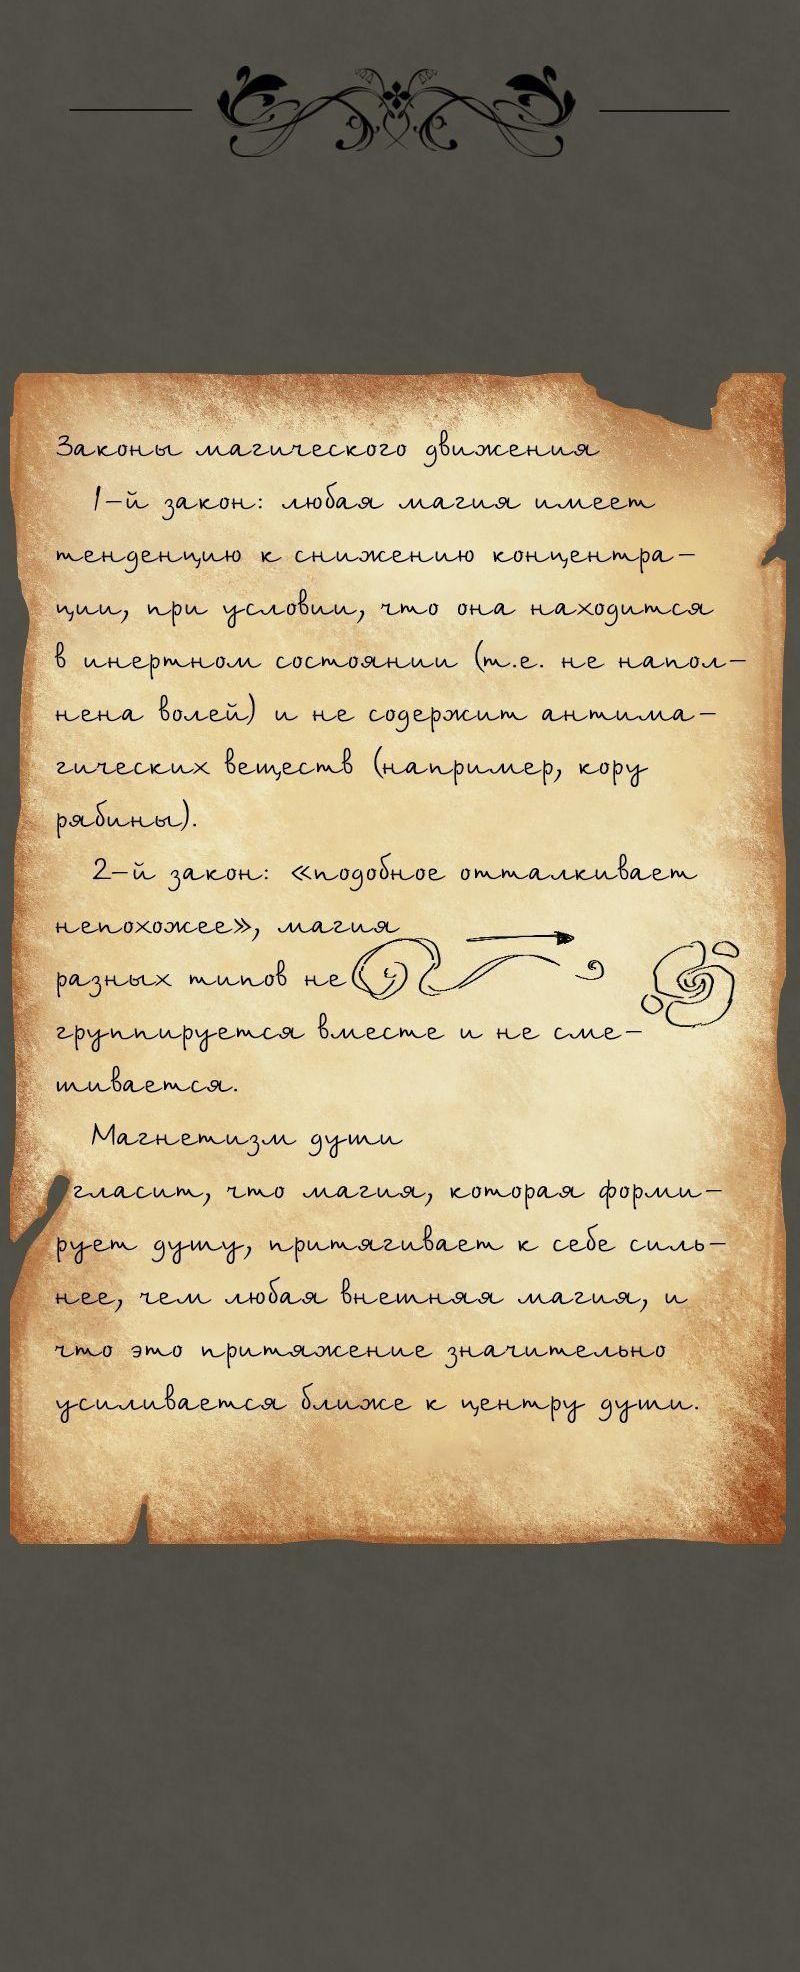 Законы магического движения
1-й закон: любая магия имеет
тенденцию к снижению концентра-
ции, при условии, что она находится
в инертном состоянии (т.е. не напол-
нена волей) и не содержит антима-
гических веществ (например, кору
рябины).
2-й закон: «подобное отталкивает
непохожее», магия
разных типов не
группируется вместе и не сме-
шивается.
Магнетизм души
гласит, что магия, которая форми-
рует душу, притягивает к себе силь-
нее, чем любая внешняя магия, и
что это притяжение значительно
усиливается ближе к центру души.